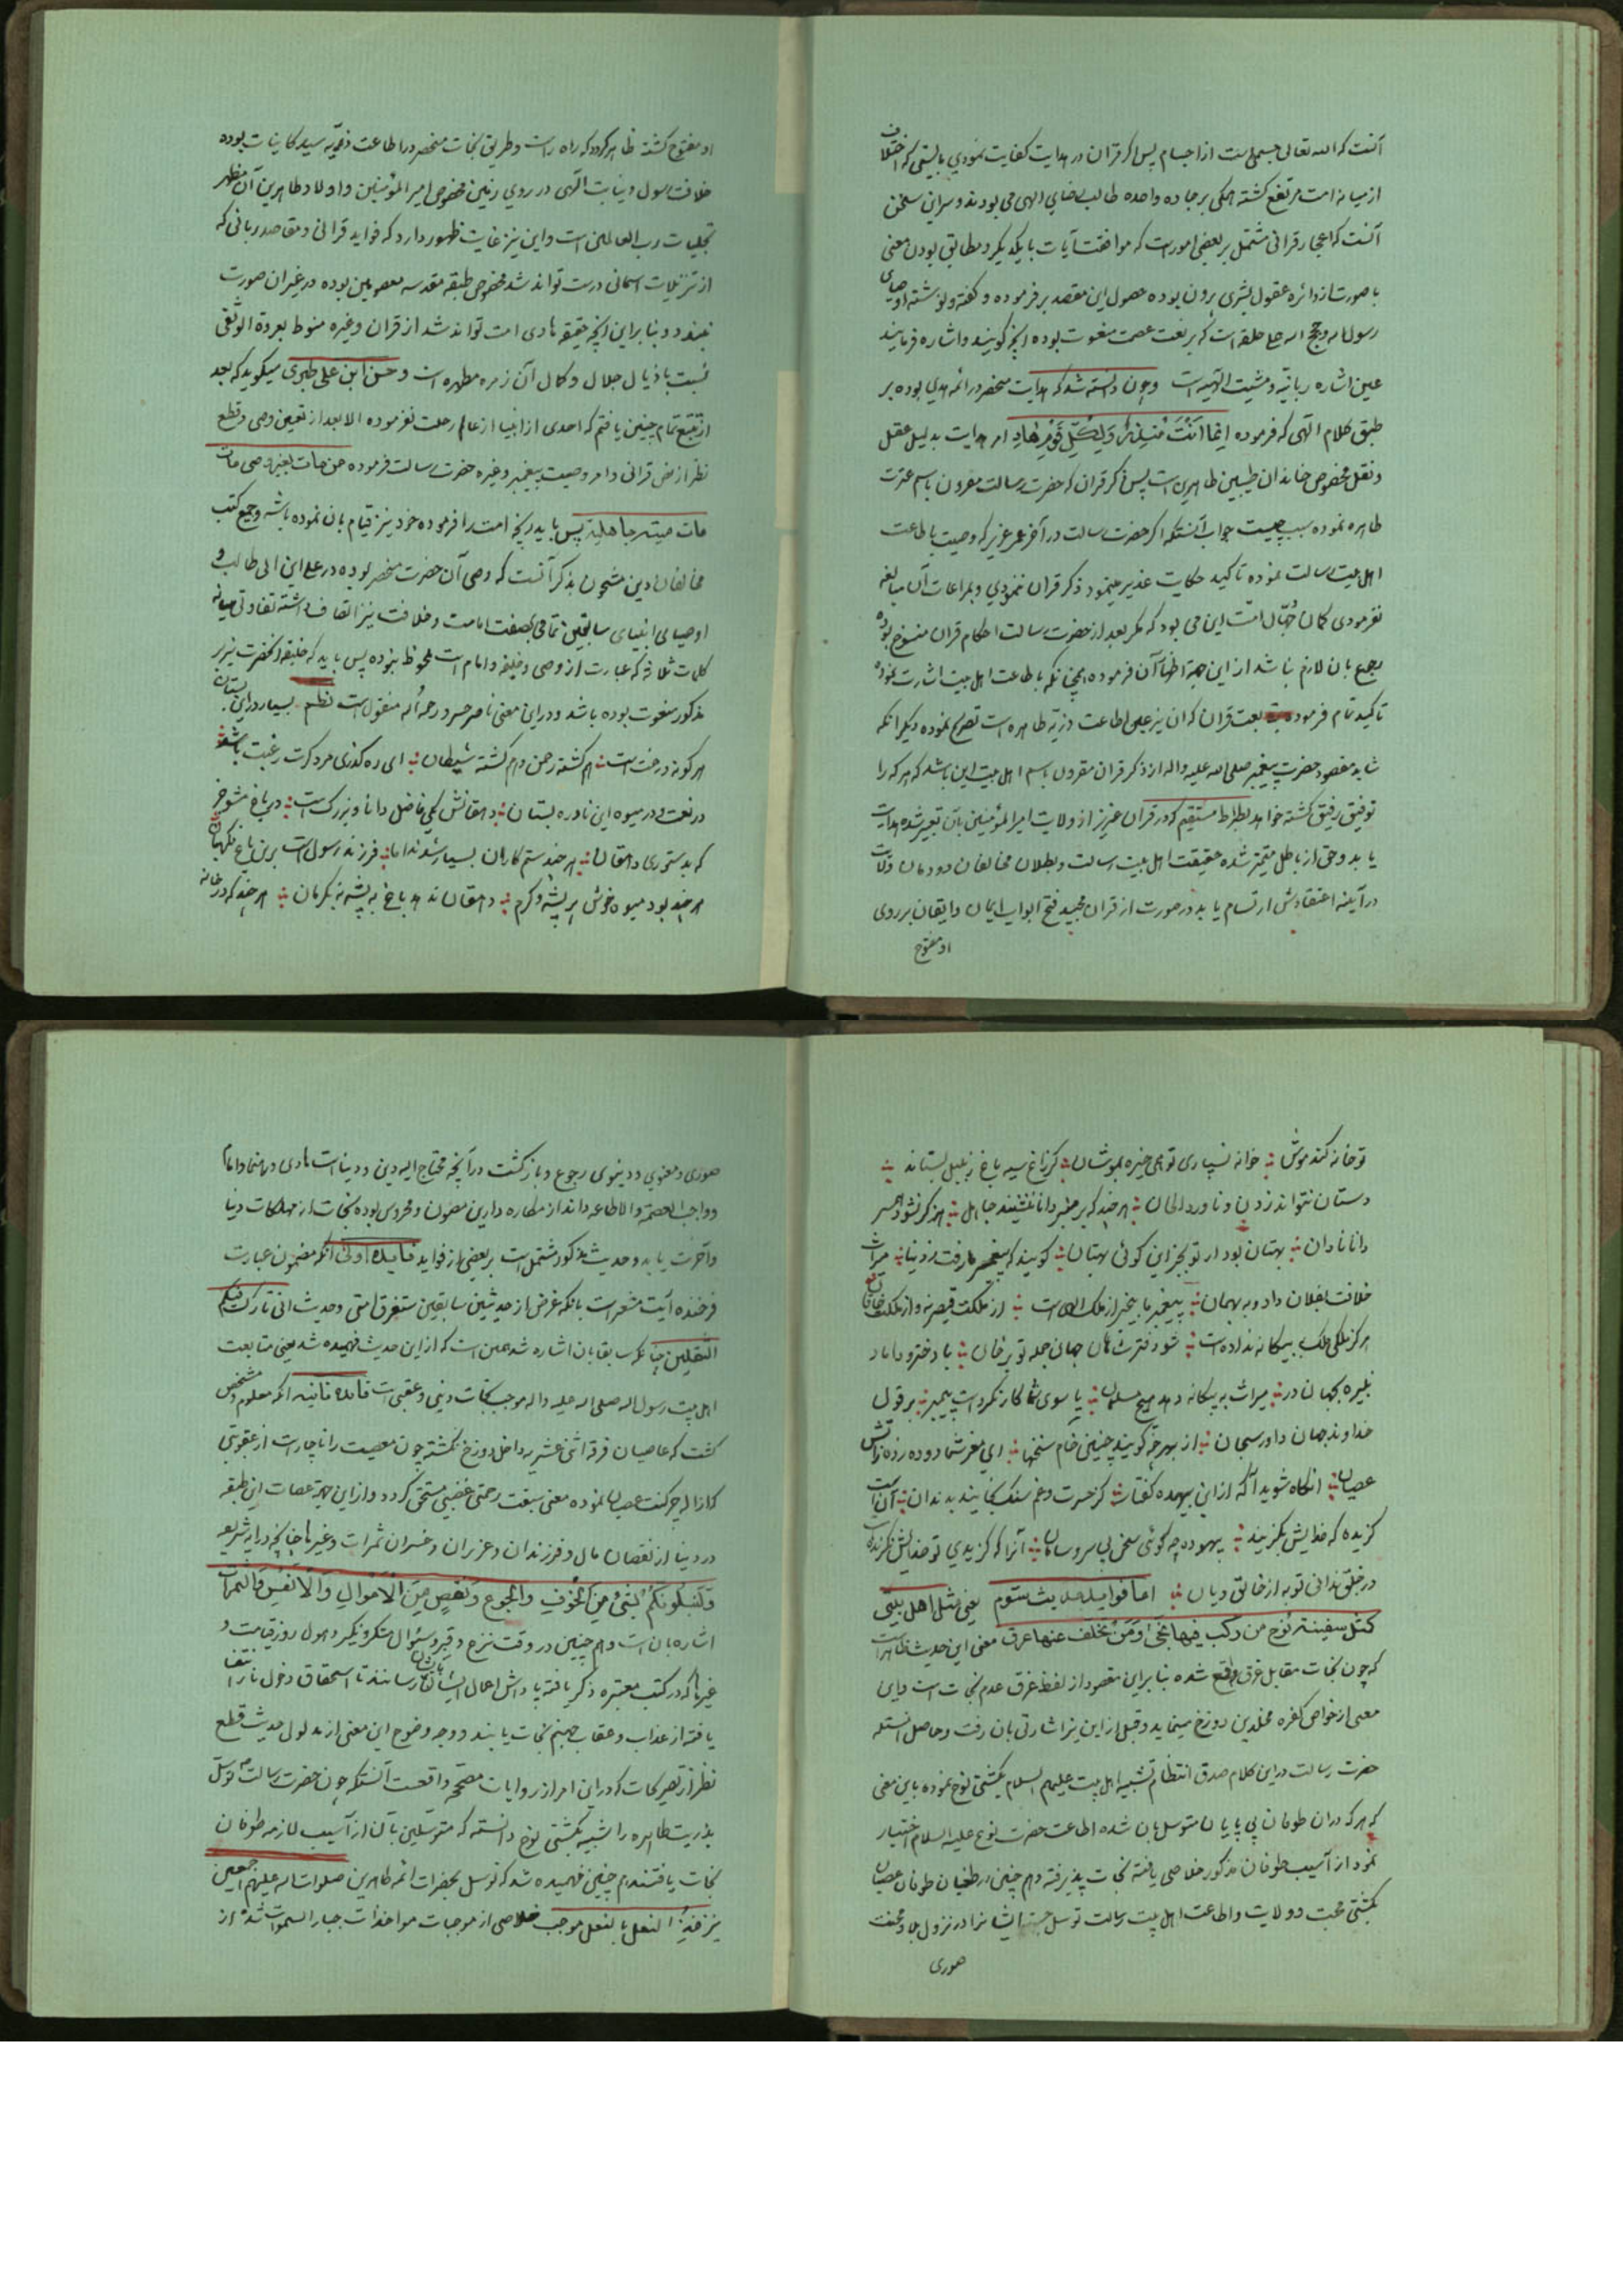 آنست که الله تعالی جسمی است از اجسام پس اگر قران در هدایت کفایت نمودی بایستی که اختلاف
از میانه امت مرتفع کشته همکی بر جاده واحده طالب رضای الهی می بودند و سر این سخن
آنست که اعجاز قرانی مشتمل بر بعضی امور است که موافقت آیات با یکدیکر و مطابق بودن معنی
با صورت از دائره عقول بشری برون بوده حصول این مقصد بر فرموده و کفته و نوشته اوصیای
رسول الله و حجج الله علی خلقه است که بر نعت عصمت منعوت بوده آنچه کویند و اشاره فرمایند
عین اشاره ربانیه و مشیت الهیه است و چون دانسته شد که هدایت منحصر در ائمه هدی بوده بر
طبق کلام الهی که فرموده انما اَنْتَ مُنذِرٌ وَلِکُلِّ قَوْمٍ هَادٍ امر هدایت بدلیل عقل
و نقل مخصوص خاندان طیبین طاهرین است پس ذکر قران که حضرت رسالت مقرون باسم عترت
طاهره نموده سبب چیست جواب آنستکه اکر حضرت رسالت در آخر عمر عزیز که وصیت باطاعت
اهل بیت رسالت نموده تاکید حکایت غدیر مینمود ذکر قران ننمودی و بمراعات آن مبالغه
نفرمودی کمان جُهّال امّت این می بود که مکر بعد از حضرت رسالت احکام قران منسوخ بوده
رجوع بان لازم نباشد از این جهة اظهار آن فرموده همچنانکه باطاعت اهل بیت اشارت نموده
تاکید تمام فرموده بمتابعت قران که ان نیز علی اطاعت ذریه طاهره است تصریح نموده دیکر انکه
شاید مقصود حضرت پیغمبر صلی الله علیه واله از ذکر قران مقرون باسم اهل بیت این باشد که هر که را
توفیق رفیق کشته خواهد بصراط مستقیم که در قران عزیز از ولایت امیر المؤمنین بآن تعبیر شده هدایت
یابد و حق از باطل متمیز شده حقیقت اهل بیت رسالت و بطلان مخالفان دودمان ولایت
در آیینه اعتقادش ارتسام یابد در صورت از قران مجید فتح ابواب ایمان و ایقان بر روی
او مفتوح
او مفتوح کشته ظاهر کردد که راه راست و طریق نجات منحصر در اطاعت ذریّه سید کاینات بوده
خلافت رسول و نیابت الهی در روی زمین مخصوص امیر المؤمنین و اولاد طاهرین آن مظهر
تجلیات رب العالمین است و این نیز غایت ظهور دارد که فواید قرانی و مقاصد ربانی که
از تنزیلات اسمانی درست تواند شد مخصوص طبقه مقدسه معصومین بوده در غیر ان صورت
نبندد و بنا براین آنچه حقیقة هادی امت تواند شد از قران و غیره منوط بعروة الوثقی
نسبت باذیال جلال و کمال آن زمره مطهره است و حسن ابن علی طبری میکوید که بعد
از تتبع تمام چنین یافتم که احدی از انبیا از عالم رحلت نفرموده الا بعد از تعیین وصی و قطع
نظر از نص قرانی و امر وصیت پیغمبر و غیره حضرت رسالت فرموده من مات بغیر وصی مات
مات میتة جاهلیة پس باید انچه امت را فرموده خود نیز قیام بان نموده باشد و جمیع کتب
مخالفان دین مشحون بذکر آنست که وصی آن حضرت منحصر بوده در علی ابن ابی طالب و
اوصیای انبیای سابقین تمامی بصفت امامت و خلافت نیز اتصاف داشته تفاوتی میانه
کلمات ثلاثه که عبارت از وصی و خلیفه و امام است ملحوظ نبوده پس باید که خلیفه انحضرت نیز بر
مذکور منعوت بوده باشد و در این معنی ناصر خسرو رحمه الله منقول است نظم بسیار در این بستان
هر کونه درخت است هم کشته رحمن و هم کشته شیطان ای ره کذری مرد کرت رغبت باشد
در نعمت و در میوه این نادره بستان دهقانش یکی فاضل دانا و بزرک است در باغ مشو جز
که بدستوری دهقان هر چند ستم کاران بسیار شدند اما فرزند رسول است برین باغ نکهبان
هر چند بود میوه خوش بر پشه و کرم دهقان ندهد باغ به پشه نه بکرمان هر چند که در خانه
تو خانه کند موش خوانه نسپاری تو همی خیره بموشان کر زاغ سیه باغ ز بلبل بستاند
دستان نتواند زدن و ناورد الحان هر چند که بر منبر دانا بنشیند جاهل هرکز نشود همسر
دانا نادان بهتان بود ار تو بجز این کوئی بهتان کویند که پیغمبر ما رفت ز دنیا میراث
خلافت بفلان داد و به بهمان پیغمبر ما بیخبر از ملک الهی است از ملکت قیصر نه و از ملکت خاقان
هرکز ملکی ملک به بیکانه نداده است شو دفتر شاهان جهان جمله تو برخوان با دختر و داماد
نبیره بجهان در میراث به بیکانه دهد هیچ مسلمان یا سوی شما کار نکرده است پیمبر بر قول
خداوند جهان داور سبحان از بهر چه کویید چنین خام سخنها ای مغز شما دوده زده ز آتش
عصیان انکاه شوید آکه از این بیهده کفتار کز حسرت و غم سنک بخایید بدندان آن است
کزیده که خدایش بکزیند بیهوده چه کوئی سخن بی سر و سامان آنرا که کزیدی تو خدایش نکزیده است
در خلق ندانی تو به از خالق دیان اما فواید حدیث سیوم یعنی مثل اهل بیتی
کمثل سفینة نوح من رکب فیها نجی و مَنْ تخلف عنها غرق معنی این حدیث ظاهر است
که چون نجات مقابل غرق واقع شده بنا براین مقصود از لفظ غرق عدم نجات است و این
معنی از خواص کفره مخلدین دوزخ مینماید و قبل از این نیز اشارتی بان رفت و حاصل انستکه
حضرت رسالت در این کلام صدق انتظام تشبیه اهل بیت علیهم السلام بکشتی نوح نموده باین معنی
که هر که در ان طوفان بی پایان متوسل بان شده اطاعت حضرت نوح علیه السلام اختیار
نمود از آسیب طوفان مذکور خلاصی یافته نجات پذیرفته و هم چنین در طغیان طوفان عصیان
بکشتی محبت و ولایت و اطاعت اهل بیت رسالت توسل جسته ایشانرا در نزول بلا و محنت
صوری
صوری و معنوی و دنیوی رجوع و بازکشت در آنچه محتاج الیه دین و دنیاست هادی و رهنما و امام
و واجب العصمة و الاطاعه داند از مکاره دارین مصون و محروس بوده نجات از مهلکات دنیا
و آخرت یابد و حدیث مذکور مشتمل است بر بعضی از فواید فایده اولی آنکه مضمون عبارت
فرخنده آیت مشعر است بانکه غرض از حدیثین سابقین ستفرق امتی و حدیث انی تارک فیکم
الثقلین چنانکه سابقا بان اشاره شد همین است که از این حدیث فهمیده شد یعنی متابعت
اهل بیت رسول الله صلی الله علیه واله موجب نجات دینی و عقبی است فایده ثانیه آنکه معلوم و مشخص
کشت که عاصیان فرقه اثنی عشریه داخل دوزخ نکشته چون معصیت را ناچار است از عقوبتی
که ازاله چرک عصیان نموده معنی سبقت رحمتی غضبی مستحق کردد و از این جهة عصات این طبقه
در دنیا از نقصان مال و فرزندان و عزیزان و خسران ثمرات و غیرها چنانچه در آیه شریفه
وَلَنَبْلُوَنَّکُم بِشَیْءٍ مِنَ الخَوْفِ وَالجُوعِ وَنَقْصٍ مِنَ الاَمْوَالِ وَالاَنْفُسِ وَالثَّمَرَاتِ
اشاره بان است و هم چنین در وقت نزع و قبر و سؤال منکر و نکیر و هول روز قیامت و
غیرها که در کتب معتبره ذکر یافته پاداش اعمال ایشان بایشان رسانند تا استحقاق دخول نار انتفا
یافته از عذاب و عقاب جهنم نجات یابند و وجه وضوح این معنی از مدلول حدیث قطع
نظر از تصریحات که در این امر از روایات مصححه واقعست آنستکه چون حضرت رسالت توسل
بذریت طاهره را شبیه بکشتی نوح دانسته که متوسلین بآن از آسیب لازمه طوفان
نجات یافتند هم چنین فهمیده شد که توسل بحضرات ائمه طاهرین صلوات الله علیهم اجمعین
نیز حذو النعل بالنعل موجب خلاصی از موجبات مواخذات جبار السموات شد از